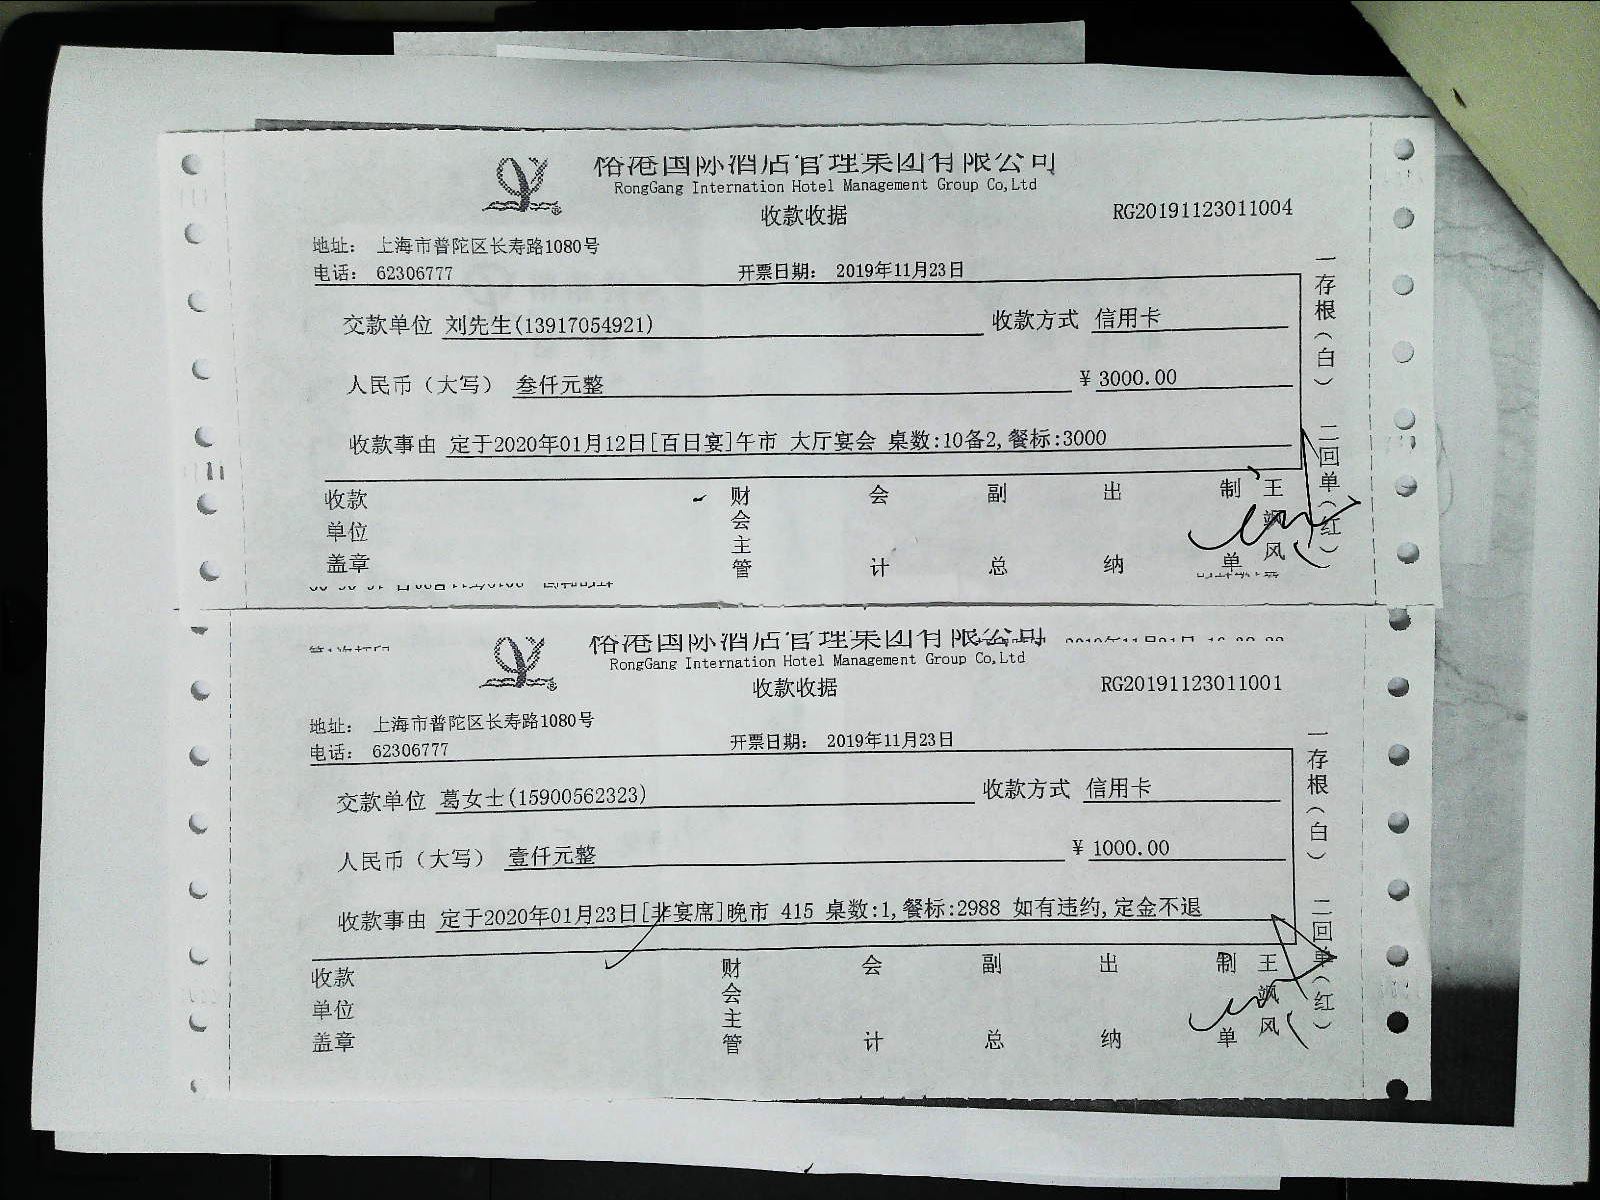 国际酒店管理集团有限公司
RongGang Internation Hotel Management Group Co,Ltd
收款收据
RG20191123011004
地址： 上海市普陀区长寿路1080号
电话： 62306777 开票日期： 2019年11月23日
交款单位 刘先生(13917054921) 收款方式 信用卡
人民币（大写） 叁仟元整 ¥ 3000.00
收款事由 定于2020年01月12日[百日宴]午市 大厅宴会 桌数:10备2,餐标:3000
收款单位盖章 财会主管 会计 副总 出纳 制单 王飒风
一存根（白） 二回单（红）
国际酒店管理集团有限公司
RongGang Internation Hotel Management Group Co,Ltd
收款收据
RG20191123011001
地址： 上海市普陀区长寿路1080号
电话： 62306777 开票日期： 2019年11月23日
交款单位 葛女士(15900562323) 收款方式 信用卡
人民币（大写） 壹仟元整 ¥ 1000.00
收款事由 定于2020年01月23日[非宴席]晚市 415 桌数:1,餐标:2988 如有违约,定金不退
收款单位盖章 财会主管 会计 副总 出纳 制单 王飒风
一存根（白） 二回单（红）